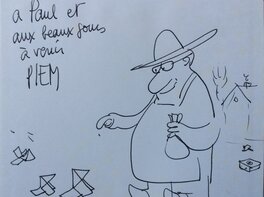 a Paul et
aux beaux jours
à venir
PIEM